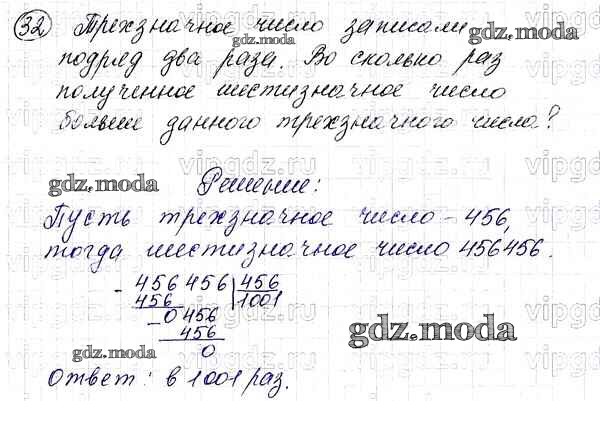 32 Трехзначное число записали
подряд два раза. Во сколько раз
полученное шестизначное число
больше данного трехзначного числа?
Решение:
Пусть трехзначное число - 456,
тогда шестизначное число 456456.
- 456 456 | 456
456 1001
- 0 456
456
0
Ответ: в 1001 раз.
gdz.moda
gdz.moda
gdz.moda
gdz.moda
gdz.moda
gdz.moda